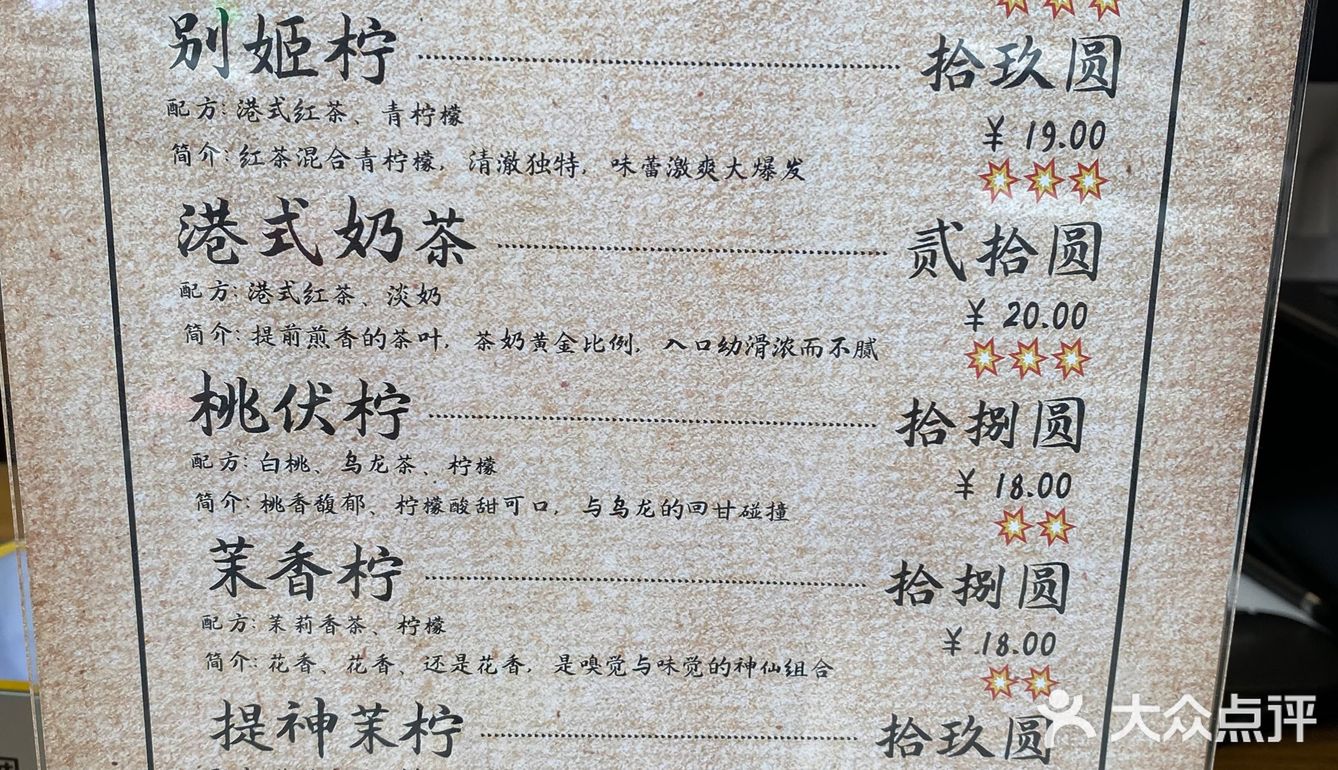 别姬柠 拾玖圆
配方: 港式红茶、青柠檬
¥ 19.00
简介: 红茶混合青柠檬, 清澈独特, 味蕾激爽大爆发
港式奶茶 贰拾圆
配方: 港式红茶、淡奶
¥ 20.00
简介: 提前煎香的茶叶, 茶奶黄金比例, 入口幼滑浓而不腻
桃伏柠 拾捌圆
配方: 白桃、乌龙茶、柠檬
¥ 18.00
简介: 桃香馥郁、柠檬酸甜可口, 与乌龙的回甘碰撞
茉香柠 拾捌圆
配方: 茉莉香茶、柠檬
¥ 18.00
简介: 花香、花香、还是花香, 是嗅觉与味觉的神仙组合
提神茉柠 拾玖圆
大众点评